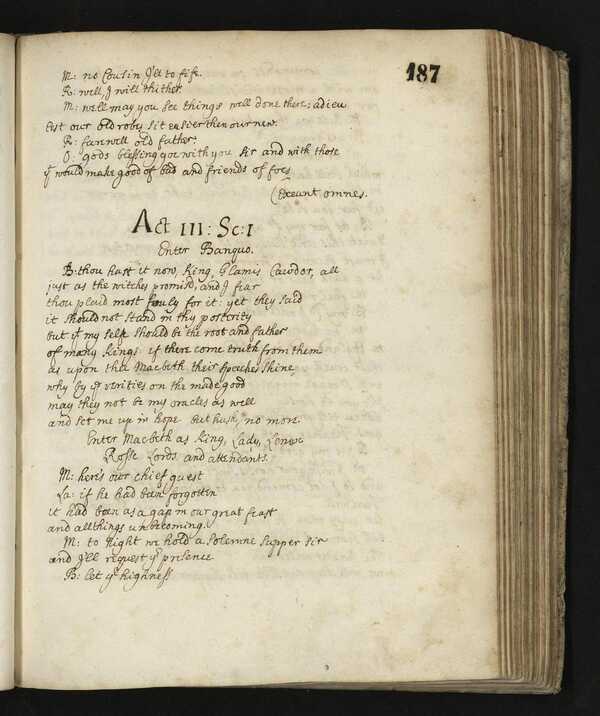 187
M: no Cousin I'll to fife.
R: well, I will thither
M: well may you see things well done there: adieu
lest our old robes sit easier then our new.
R: farwell old father.
O: gods blessing goe with you sir and with those
yt would make good of bad and friends of foes
(Exeunt omnes.
Act III: Sc: I
Enter Banquo.
B: thou hast it now, King, Glamis Cawdor, all
just as the witches promisd, and I fear
thou plaid most fouly for it: yet they said
it should not stand in thy posterity
but yt my self should be the root and father
of many kings. if there come truth from them
as upon thee Macbeth their speeches shine
why by ye verities on thee made good
may they not be my oracles as well
and set me up in hope but hush, no more.
Enter Macbeth as King, Lady, Lenox
Rosse Lords and attendants.
M: here's our chief guest
La: if he had been forgotten
it had been as a gap in our great feast
and all things unbecoming.
M: to Night we hold a solemne supper sir
and I'll request yr presence
B: let yr highness